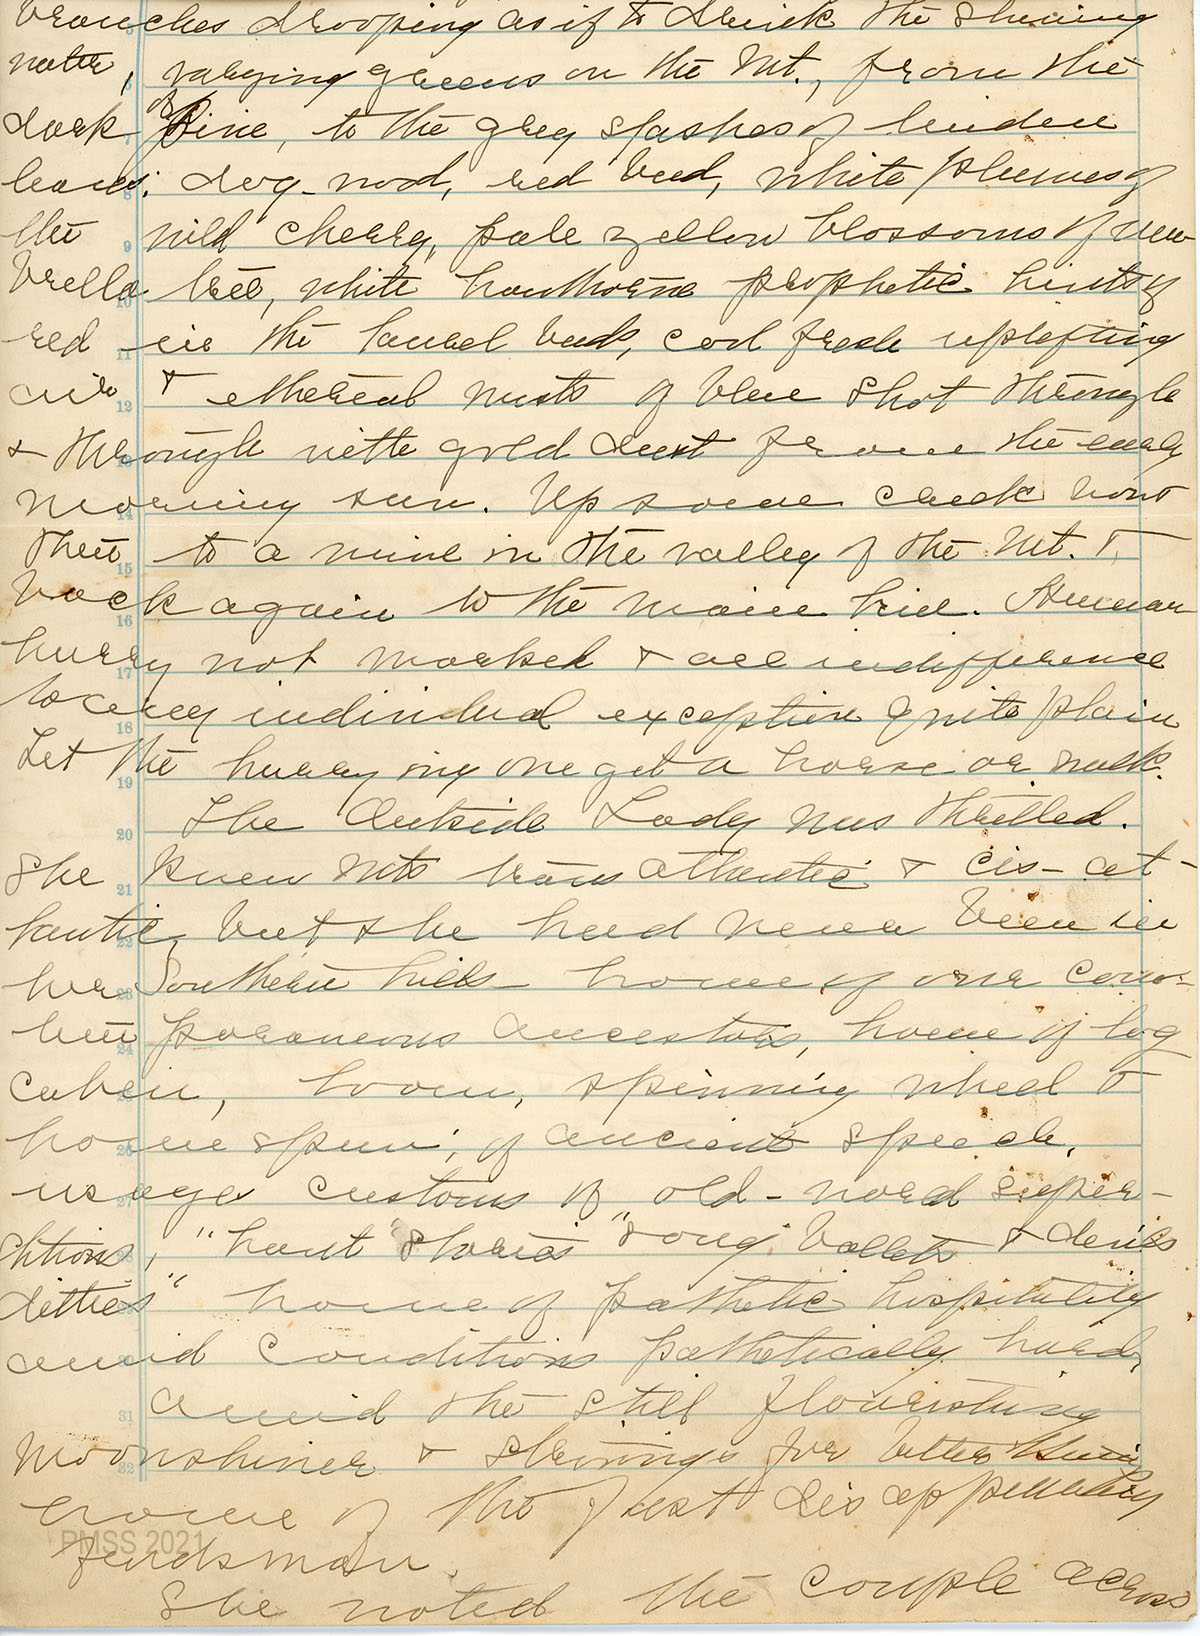 branches drooping as if to drink the shining
water, varying greens on the Mt., from the
dark of Pine, to the grey splashes of linden
leaves; dog-wood, red bud, white plumes of
the wild cherry, pale yellow blossoms of um-
brella tree, white hawthorne prophetic hints of
red in the laurel buds, cool fresh uplifting
air & ethereal mists of blue shot through
& through with gold dust from the early
morning sun. Up some creek
then to a mine in the valley of the Mt. &
back again to the main line. Human
hurry not marked & all indifference
to any individual exception quite plain
Let the hurrying one get a horse or walk.
The Outside Lady was thrilled.
She knew Mts trans atlantic & cis-at-
lantic, but she had never been in
her Southern hills - home of our con-
tem poraneous ancestors, home of log
cabin, loom, spinning wheel &
home spun; of ancient speech,
usages customs of old-word super-
stitions, "hant stories" "song ballets & devils
ditties" home of pathetic hospitality
amid conditions pathetically hard,
amid the still flourishing
Moonshiner & strivings for better things
home of the fast disappearing
feudsman.
She noted the couple across
PMSS 2021